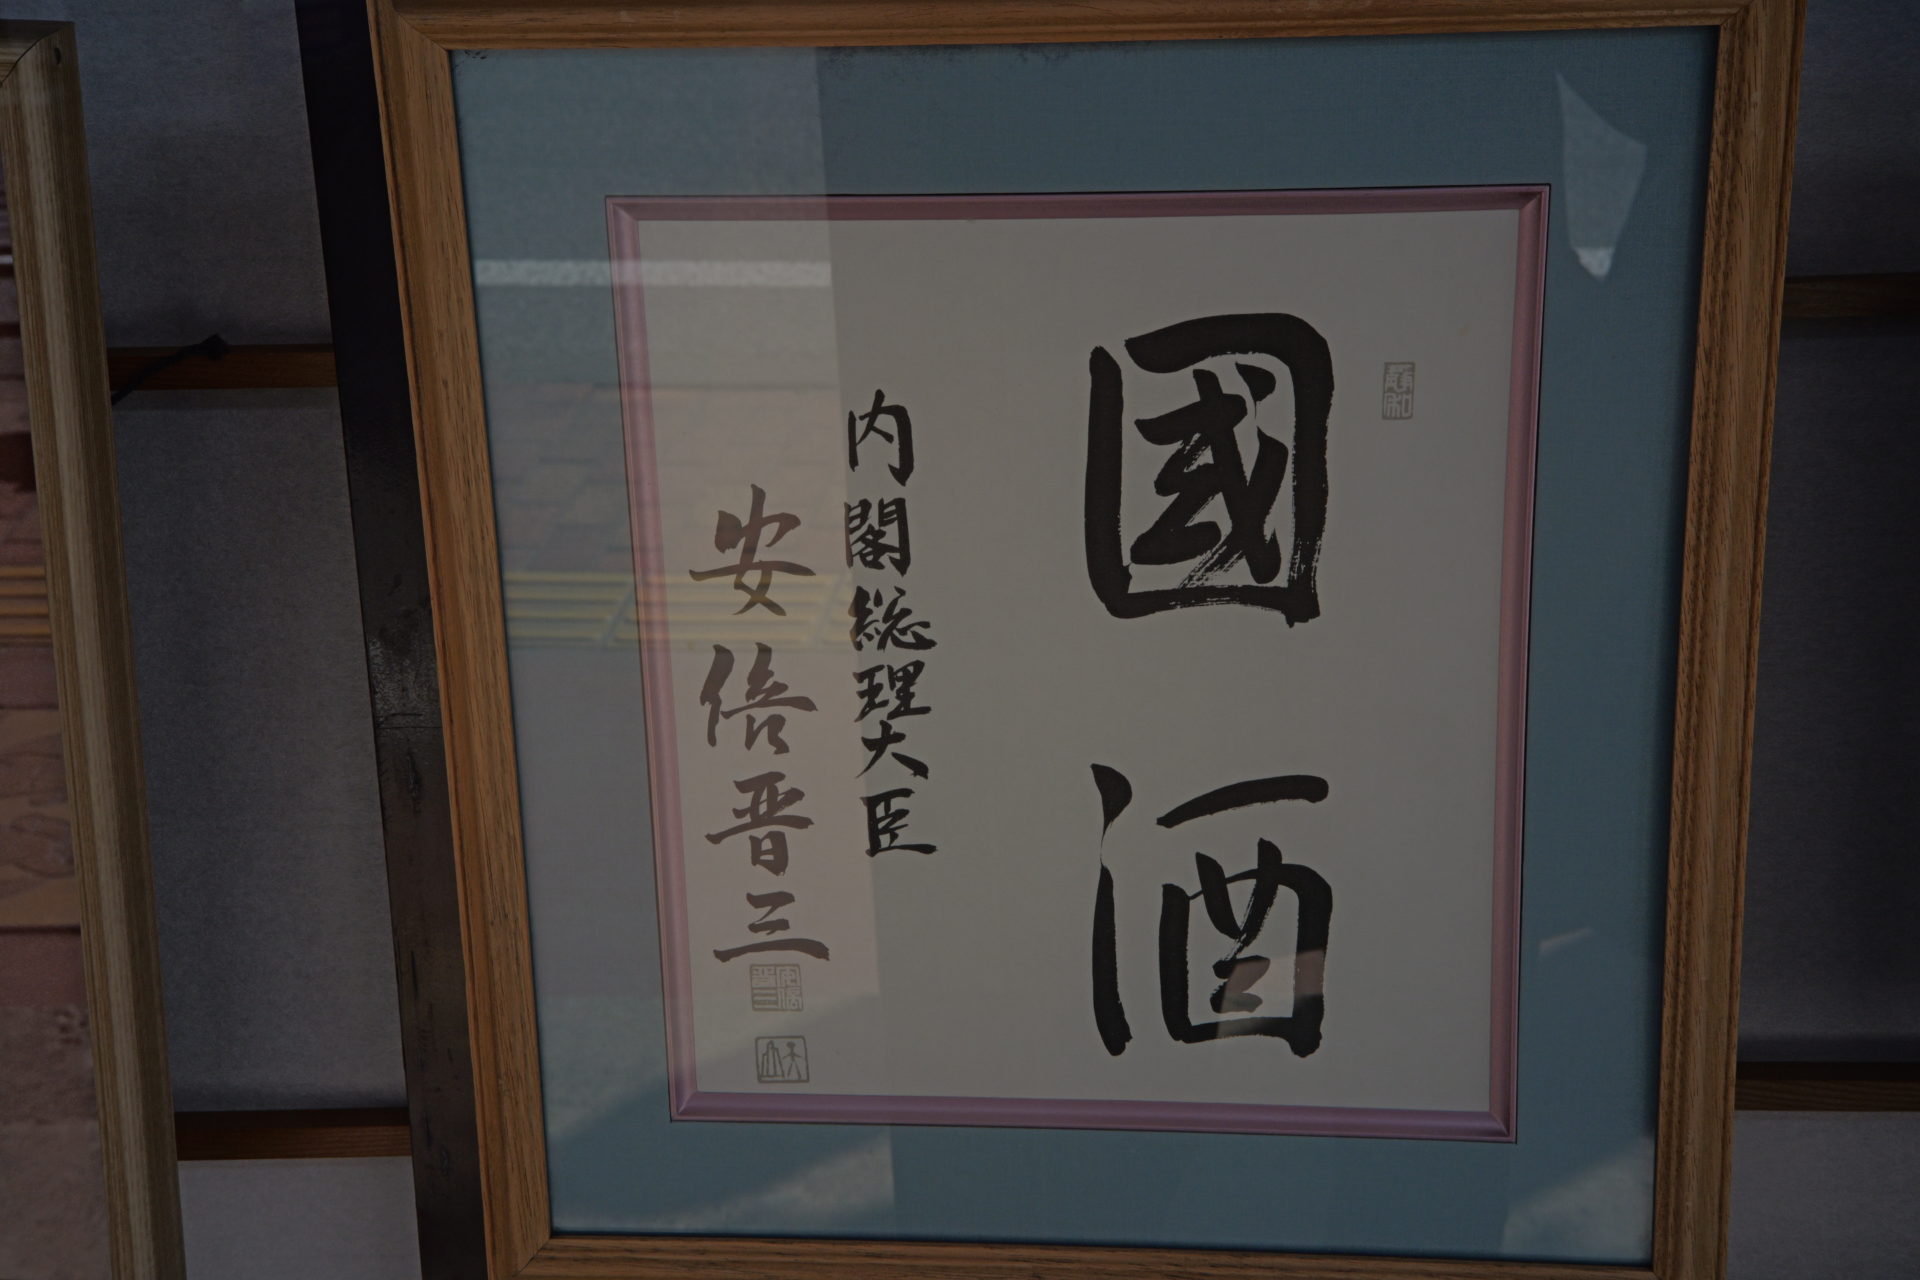 國酒
内閣総理大臣
安倍晋三
安倍晋三